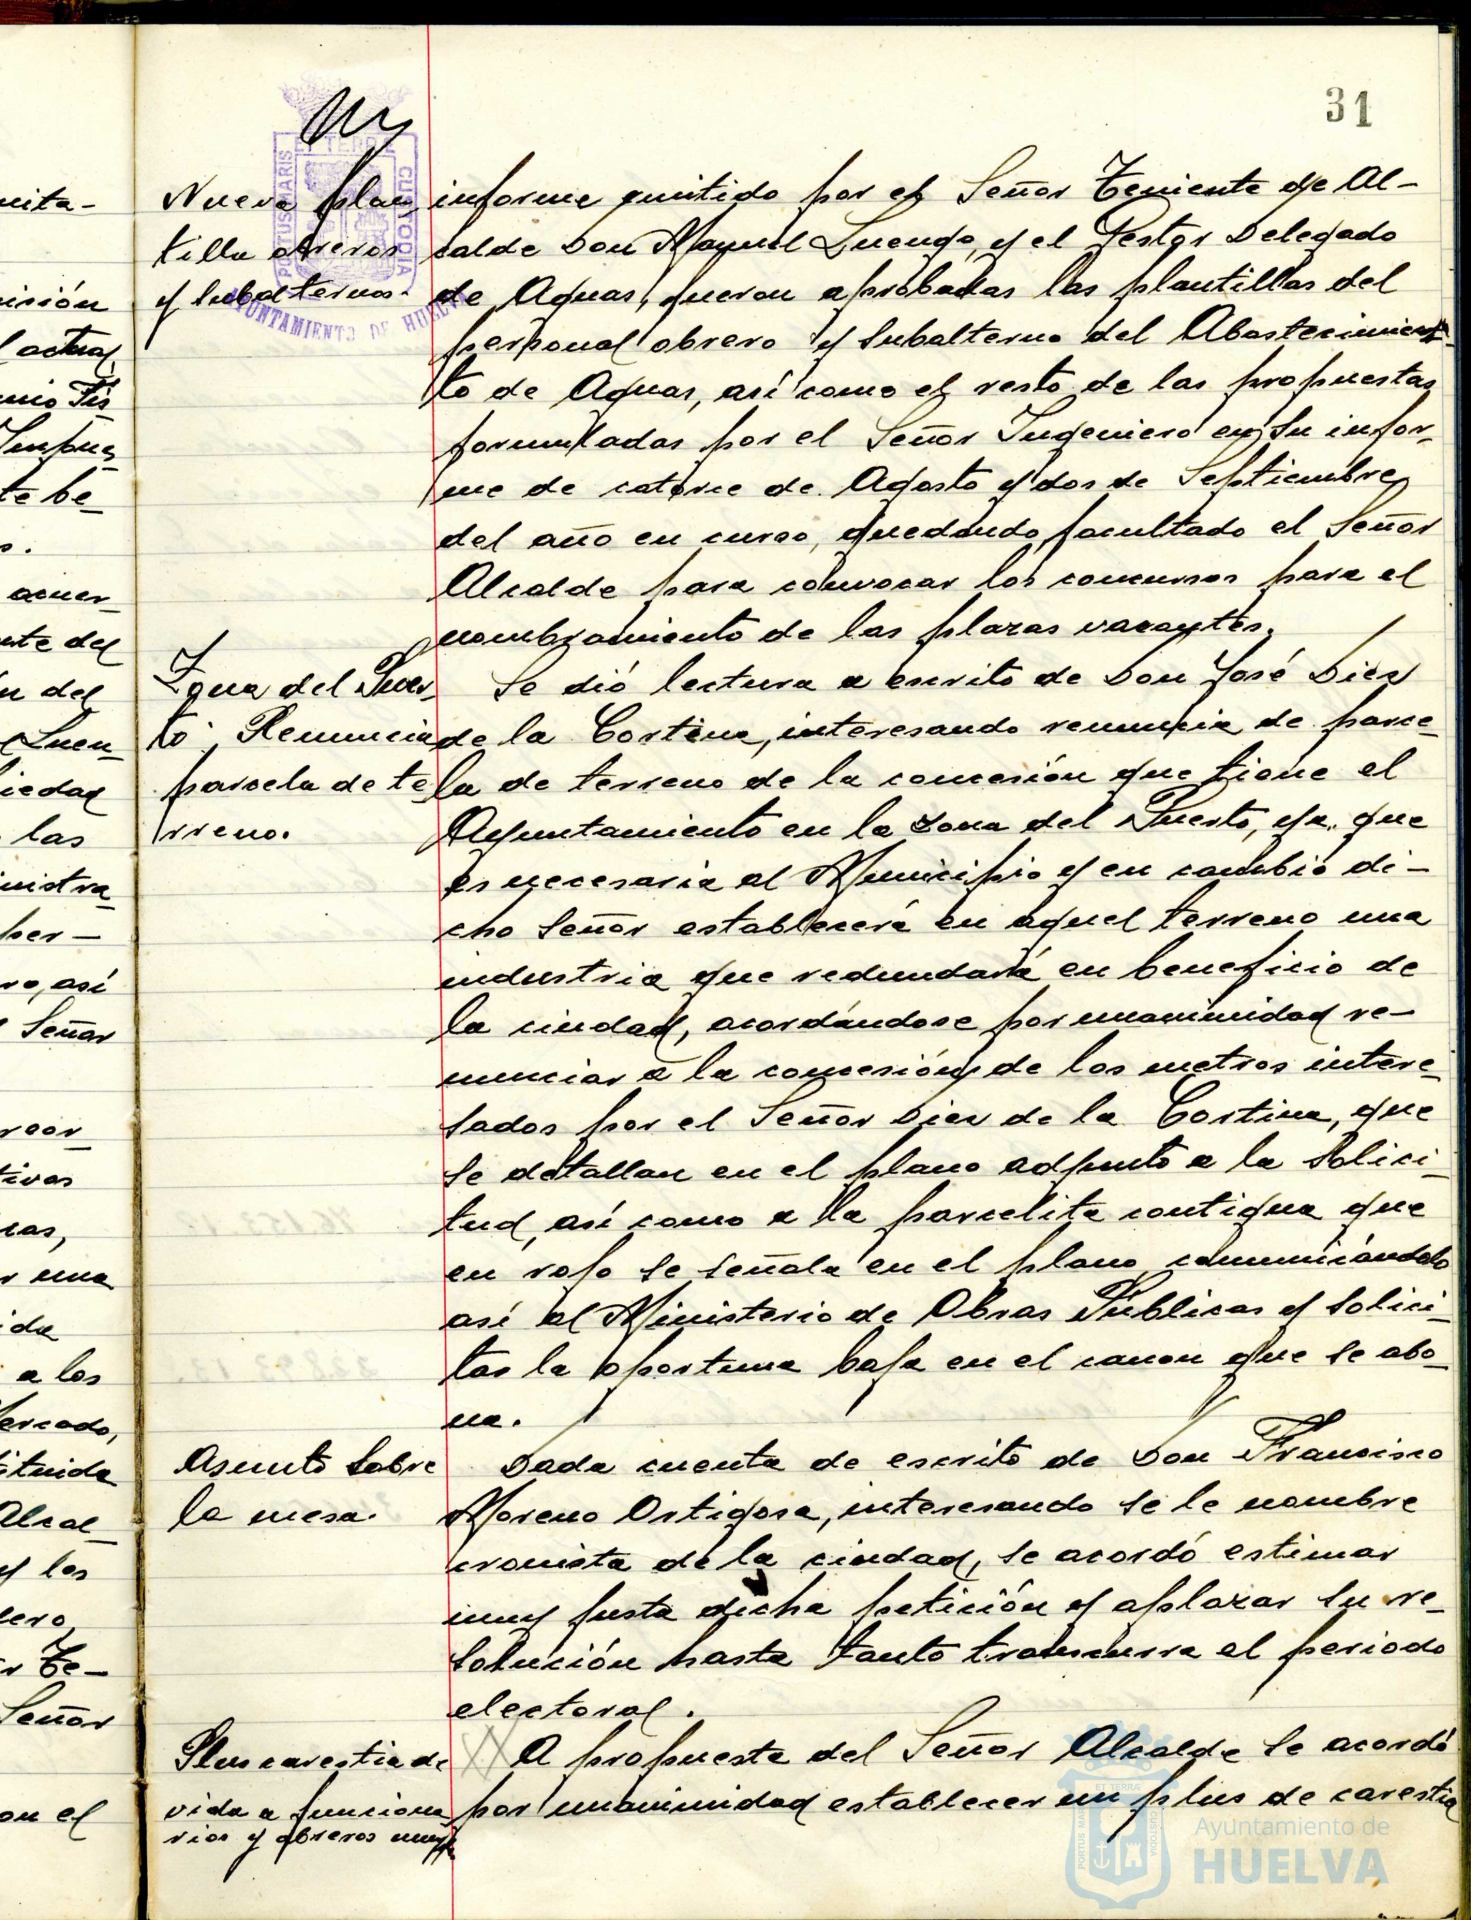 31
Nueva plan-
tilla obreros
y subalternos.
informe emitido por el Señor Teniente de Al-
calde Don Manuel Luengo, y el Gestor Delegado
de Aguas, fueron aprobadas las plantillas del
personal obrero y subalterno del Abastecimien-
to de Aguas, así como el resto de las propuestas
formuladas por el Señor Ingeniero en su infor-
me de catorce de Agosto y dos de Septiembre
del año en curso, quedando facultado el Señor
Alcalde para convocar los concursos para el
nombramiento de las plazas vacantes.
Zona del Puer-
to. Renuncia
parcela de te-
rreno.
Se dió lectura a escrito de Don José Diez
de la Cortina, interesando renuncia de parce-
la de terreno de la concesión que tiene el
Ayuntamiento en la zona del Puerto, ya que
es necesaria al Municipio y en cambio di-
cho Señor establecerá en aquel terreno una
industria que redundará en beneficio de
la ciudad, acordándose por unanimidad re-
nunciar a la concesión de los metros intere-
sados por el Señor Diez de la Cortina, que
se detallan en el plano adjunto a la solici-
tud, así como a la parcelita contigua que
en rojo se señala en el plano comunicándolo
así al Ministerio de Obras Públicas y solici-
tar la oportuna baja en el canon que se abo-
na.
Asunto sobre
la mesa.
Dada cuenta de escrito de Don Francisco
Moreno Ortigosa, interesando se le nombre
cronista de la ciudad, se acordó estimar
muy justa dicha petición y aplazar su re-
solución hasta tanto transcurra el periodo
electoral.
Plus carestia de
vida a funciona
rios y obreros
A propuesta del Señor Alcalde se acordó
por unanimidad establecer un plus de carestia
PORTUS MARIS ET TERRE CUSTODIA
AYUNTAMIENTO DE HUELVA
Ayuntamiento de
HUELVA